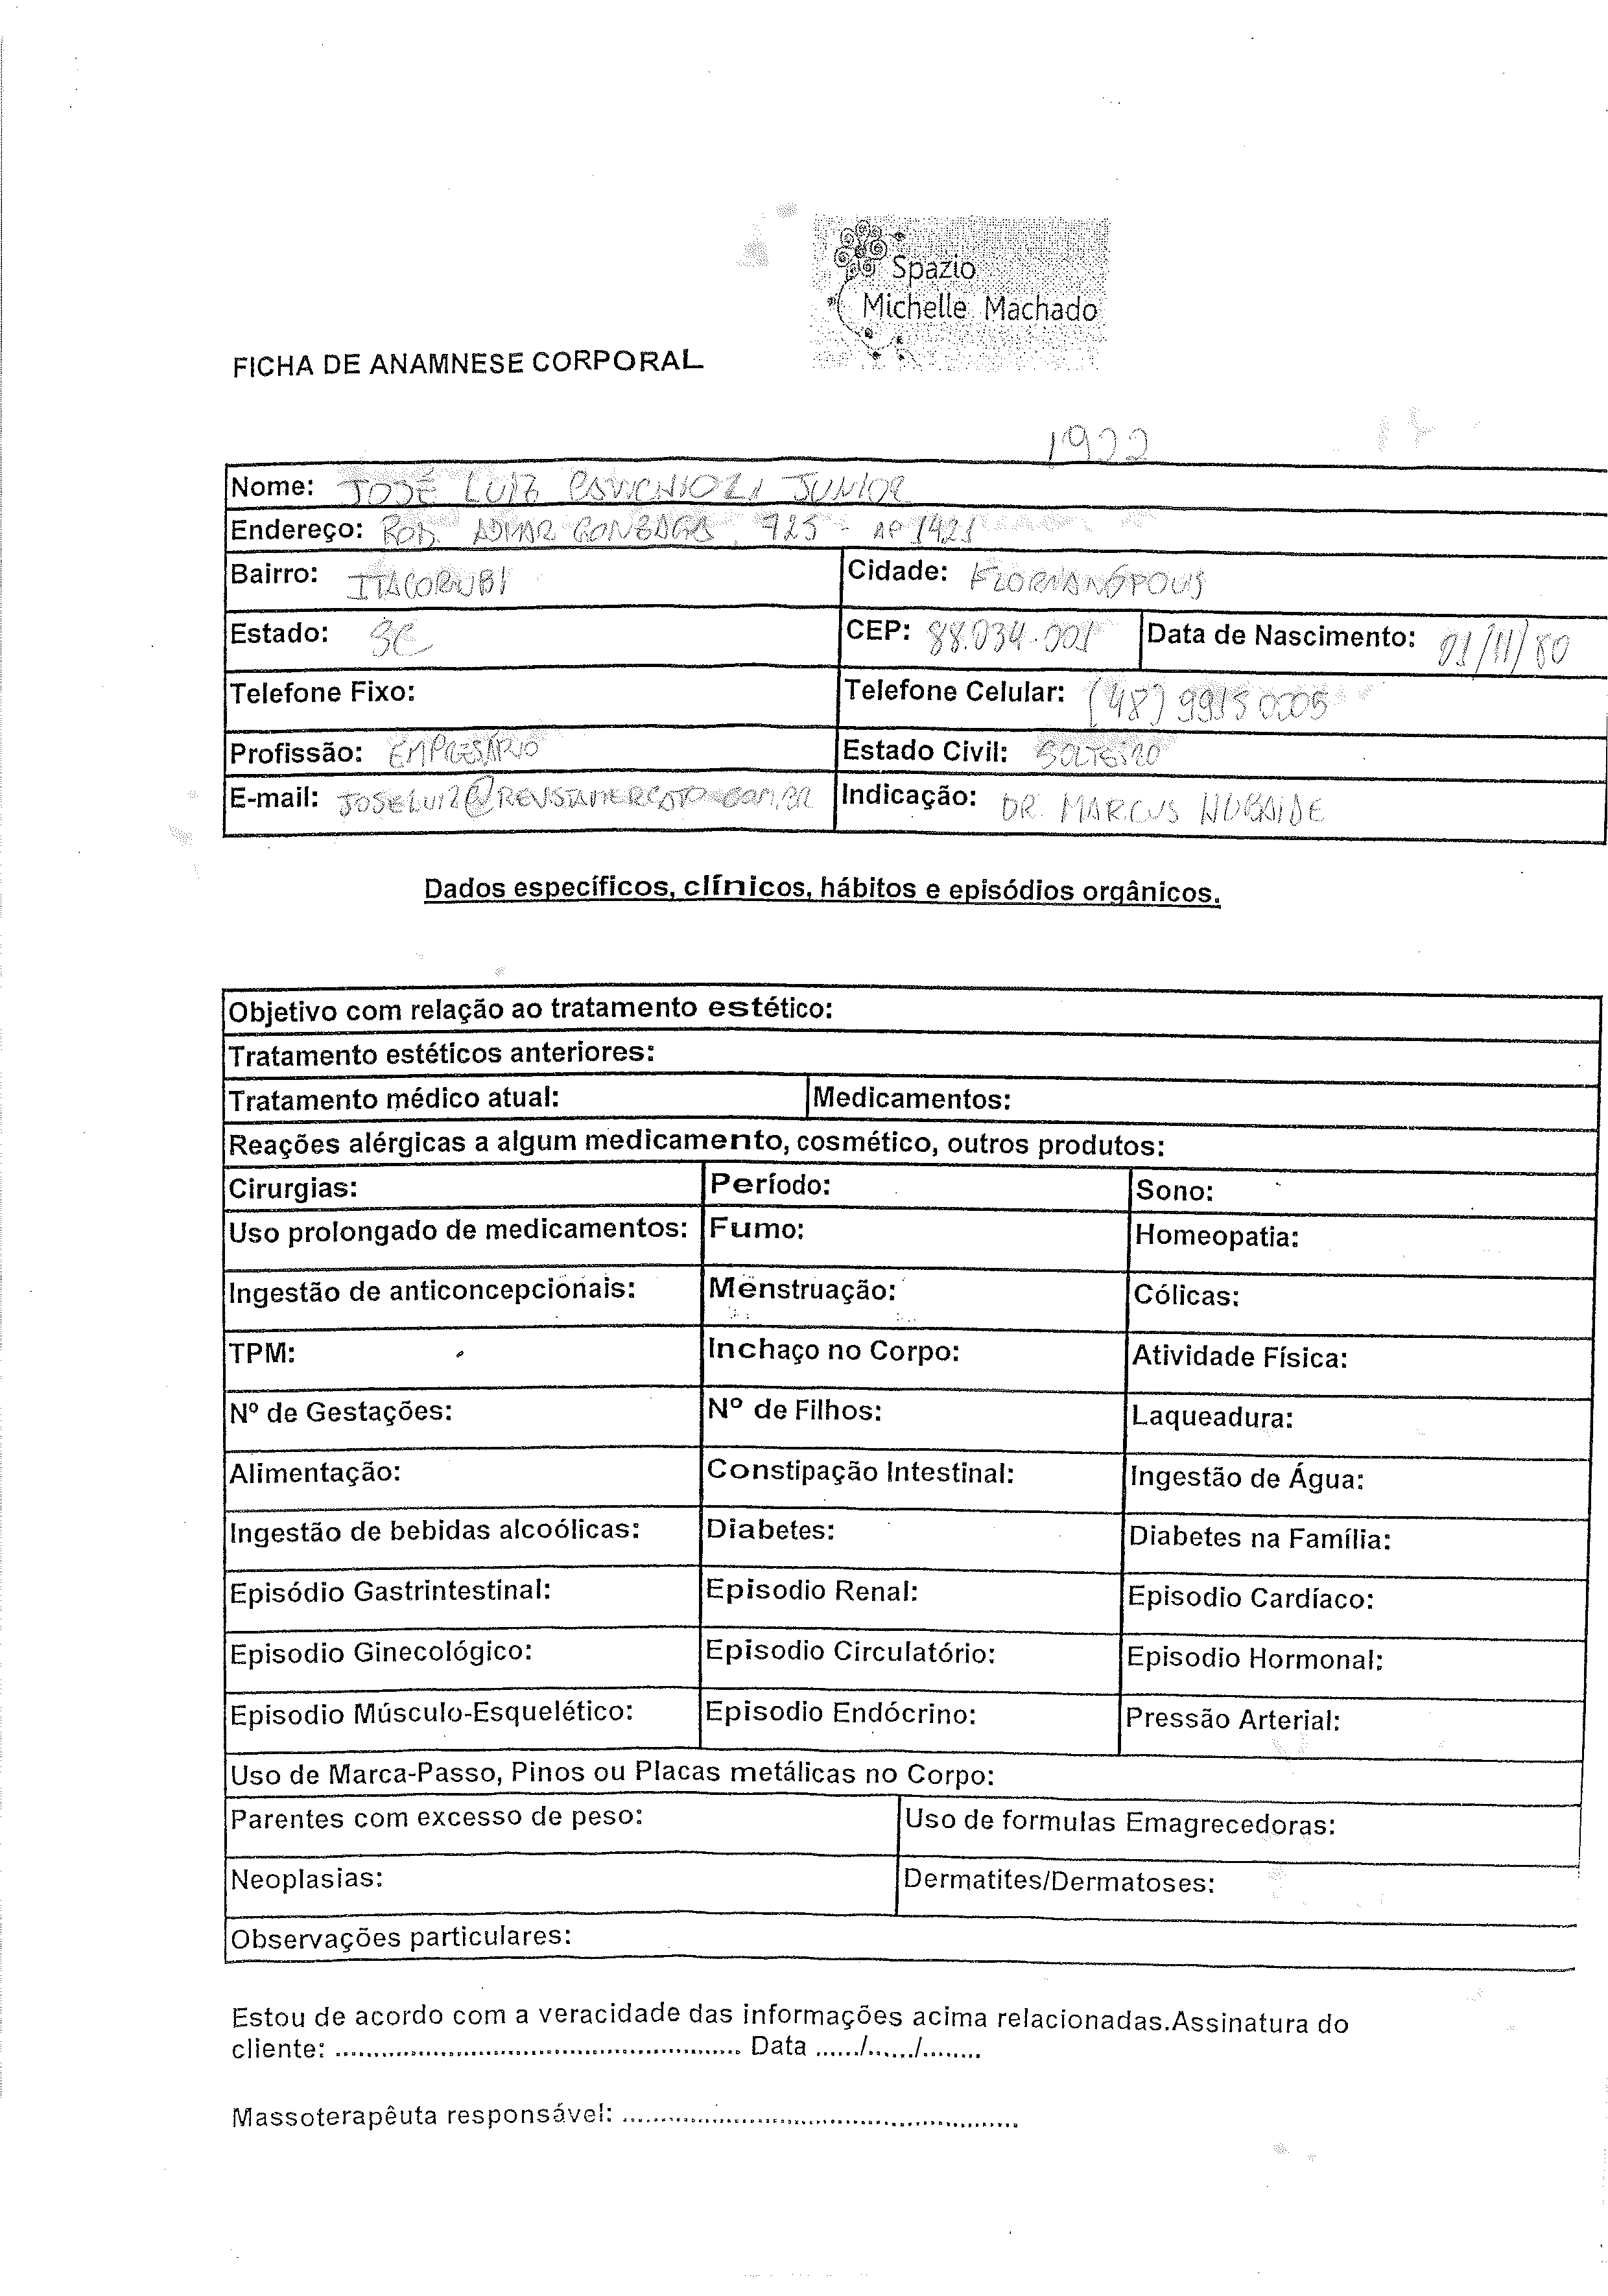 Spazio
Michelle Machado
FICHA DE ANAMNESE CORPORAL
1922
Nome: JOSÉ LUIZ JUNIOR
Endereço: ROD. ADMAR GONZAGA, 725 - AP 1421
Bairro: ITACORUBI Cidade: FLORIANÓPOLIS
Estado: SC CEP: 88.034-001 Data de Nascimento: 01/11/80
Telefone Fixo: Telefone Celular: (48) 99150005
Profissão: EMPRESÁRIO Estado Civil: SOLTEIRO
E-mail: Indicação: DR. MARCUS
Dados específicos, clínicos, hábitos e episódios orgânicos.
Objetivo com relação ao tratamento estético:
Tratamento estéticos anteriores:
Tratamento médico atual: Medicamentos:
Reações alérgicas a algum medicamento, cosmético, outros produtos:
Cirurgias: Período: Sono:
Uso prolongado de medicamentos: Fumo: Homeopatia:
Ingestão de anticoncepcionais: Menstruação: Cólicas:
TPM: Inchaço no Corpo: Atividade Física:
Nº de Gestações: Nº de Filhos: Laqueadura:
Alimentação: Constipação Intestinal: Ingestão de Água:
Ingestão de bebidas alcoólicas: Diabetes: Diabetes na Família:
Episódio Gastrintestinal: Episodio Renal: Episodio Cardíaco:
Episodio Ginecológico: Episodio Circulatório: Episodio Hormonal:
Episodio Músculo-Esquelético: Episodio Endócrino: Pressão Arterial:
Uso de Marca-Passo, Pinos ou Placas metálicas no Corpo:
Parentes com excesso de peso: Uso de formulas Emagrecedoras:
Neoplasias: Dermatites/Dermatoses:
Observações particulares:
Estou de acordo com a veracidade das informações acima relacionadas.Assinatura do
cliente: ................................................ Data ....../......./........
Massoterapêuta responsável: ................................................